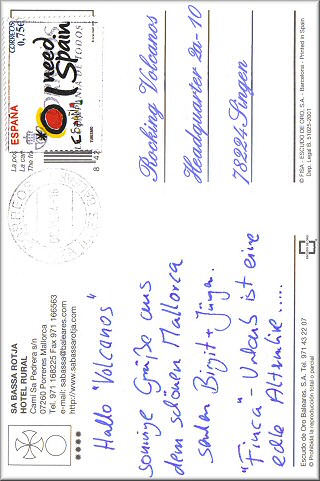 SA BASSA ROTJA
HOTEL RURAL
Camí Sa Pedrera s/n
07260 Porreres Mallorca
Tel. 971 168225 Fax 971 166563
e-mail: sabassa@baleares.com
http://www.sabassarotja.com
Hallo "Volcanos"
sonnige Grüße aus
dem schönen Mallorca
senden Birgit + Jürgen.
"Finca"-Urlaub ist eine
echte Alternative.....
Escudo de Oro Baleares, S.A. Tel. 971 43 22 07
© Prohibida la reproducción total o parcial
CORREOS
0,75€
I need
Spain
ESPAÑA
TURISMO
ESPAÑA
La
La car
The fr
8 47
Rocking Volcanos
Hedquarter 2a-10
78224 Singen
© FISA - ESCUDO DE ORO, S.A. - Barcelona - Printed in Spain
Dep. Legal B. 51023-2001